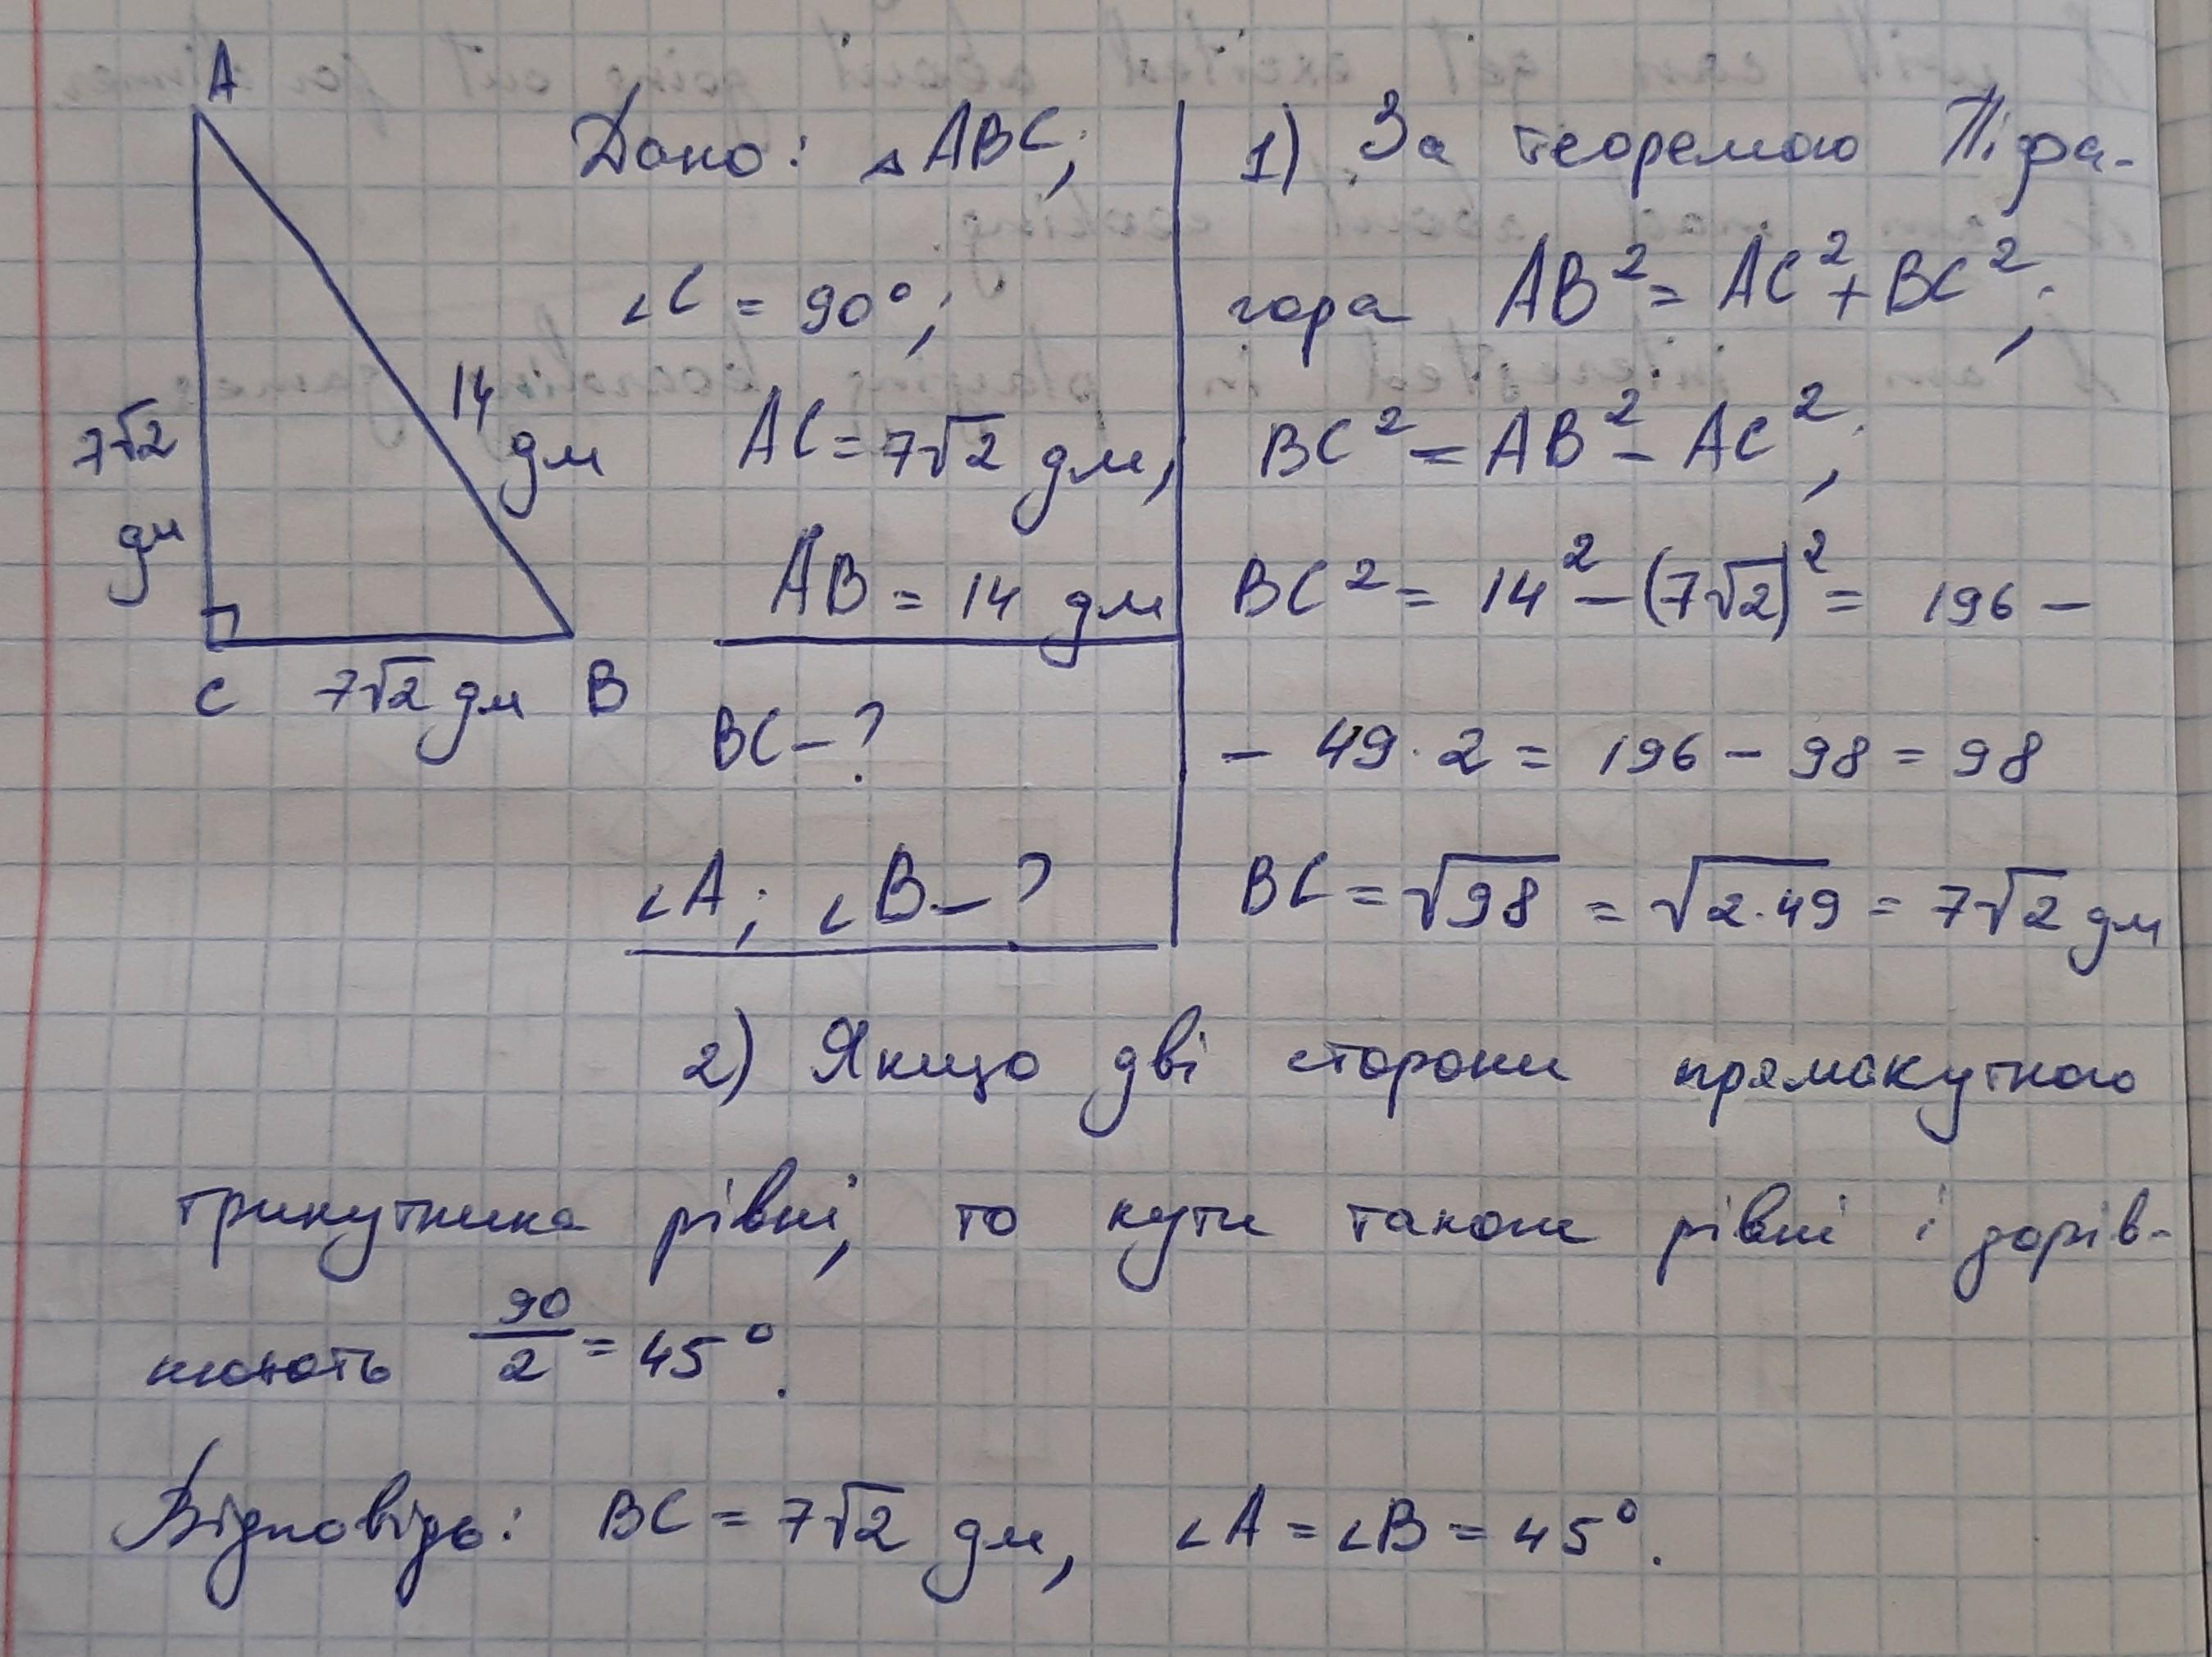 A
7√2
дм
14
дм
C 7√2 дм B
Дано: △ABC;
∠C = 90°;
AC = 7√2 дм,
AB = 14 дм
BC – ?
∠A; ∠B – ?
1) За теоремою Піфа-
гора AB² = AC² + BC²;
BC² = AB² – AC²;
BC² = 14² – (7√2)² = 196 –
– 49 · 2 = 196 – 98 = 98
BC = √98 = √2·49 = 7√2 дм
2) Якщо дві сторони прямокутного
трикутника рівні, то кути також рівні і дорів-
нюють 90/2 = 45°.
Відповідь: BC = 7√2 дм, ∠A = ∠B = 45°.